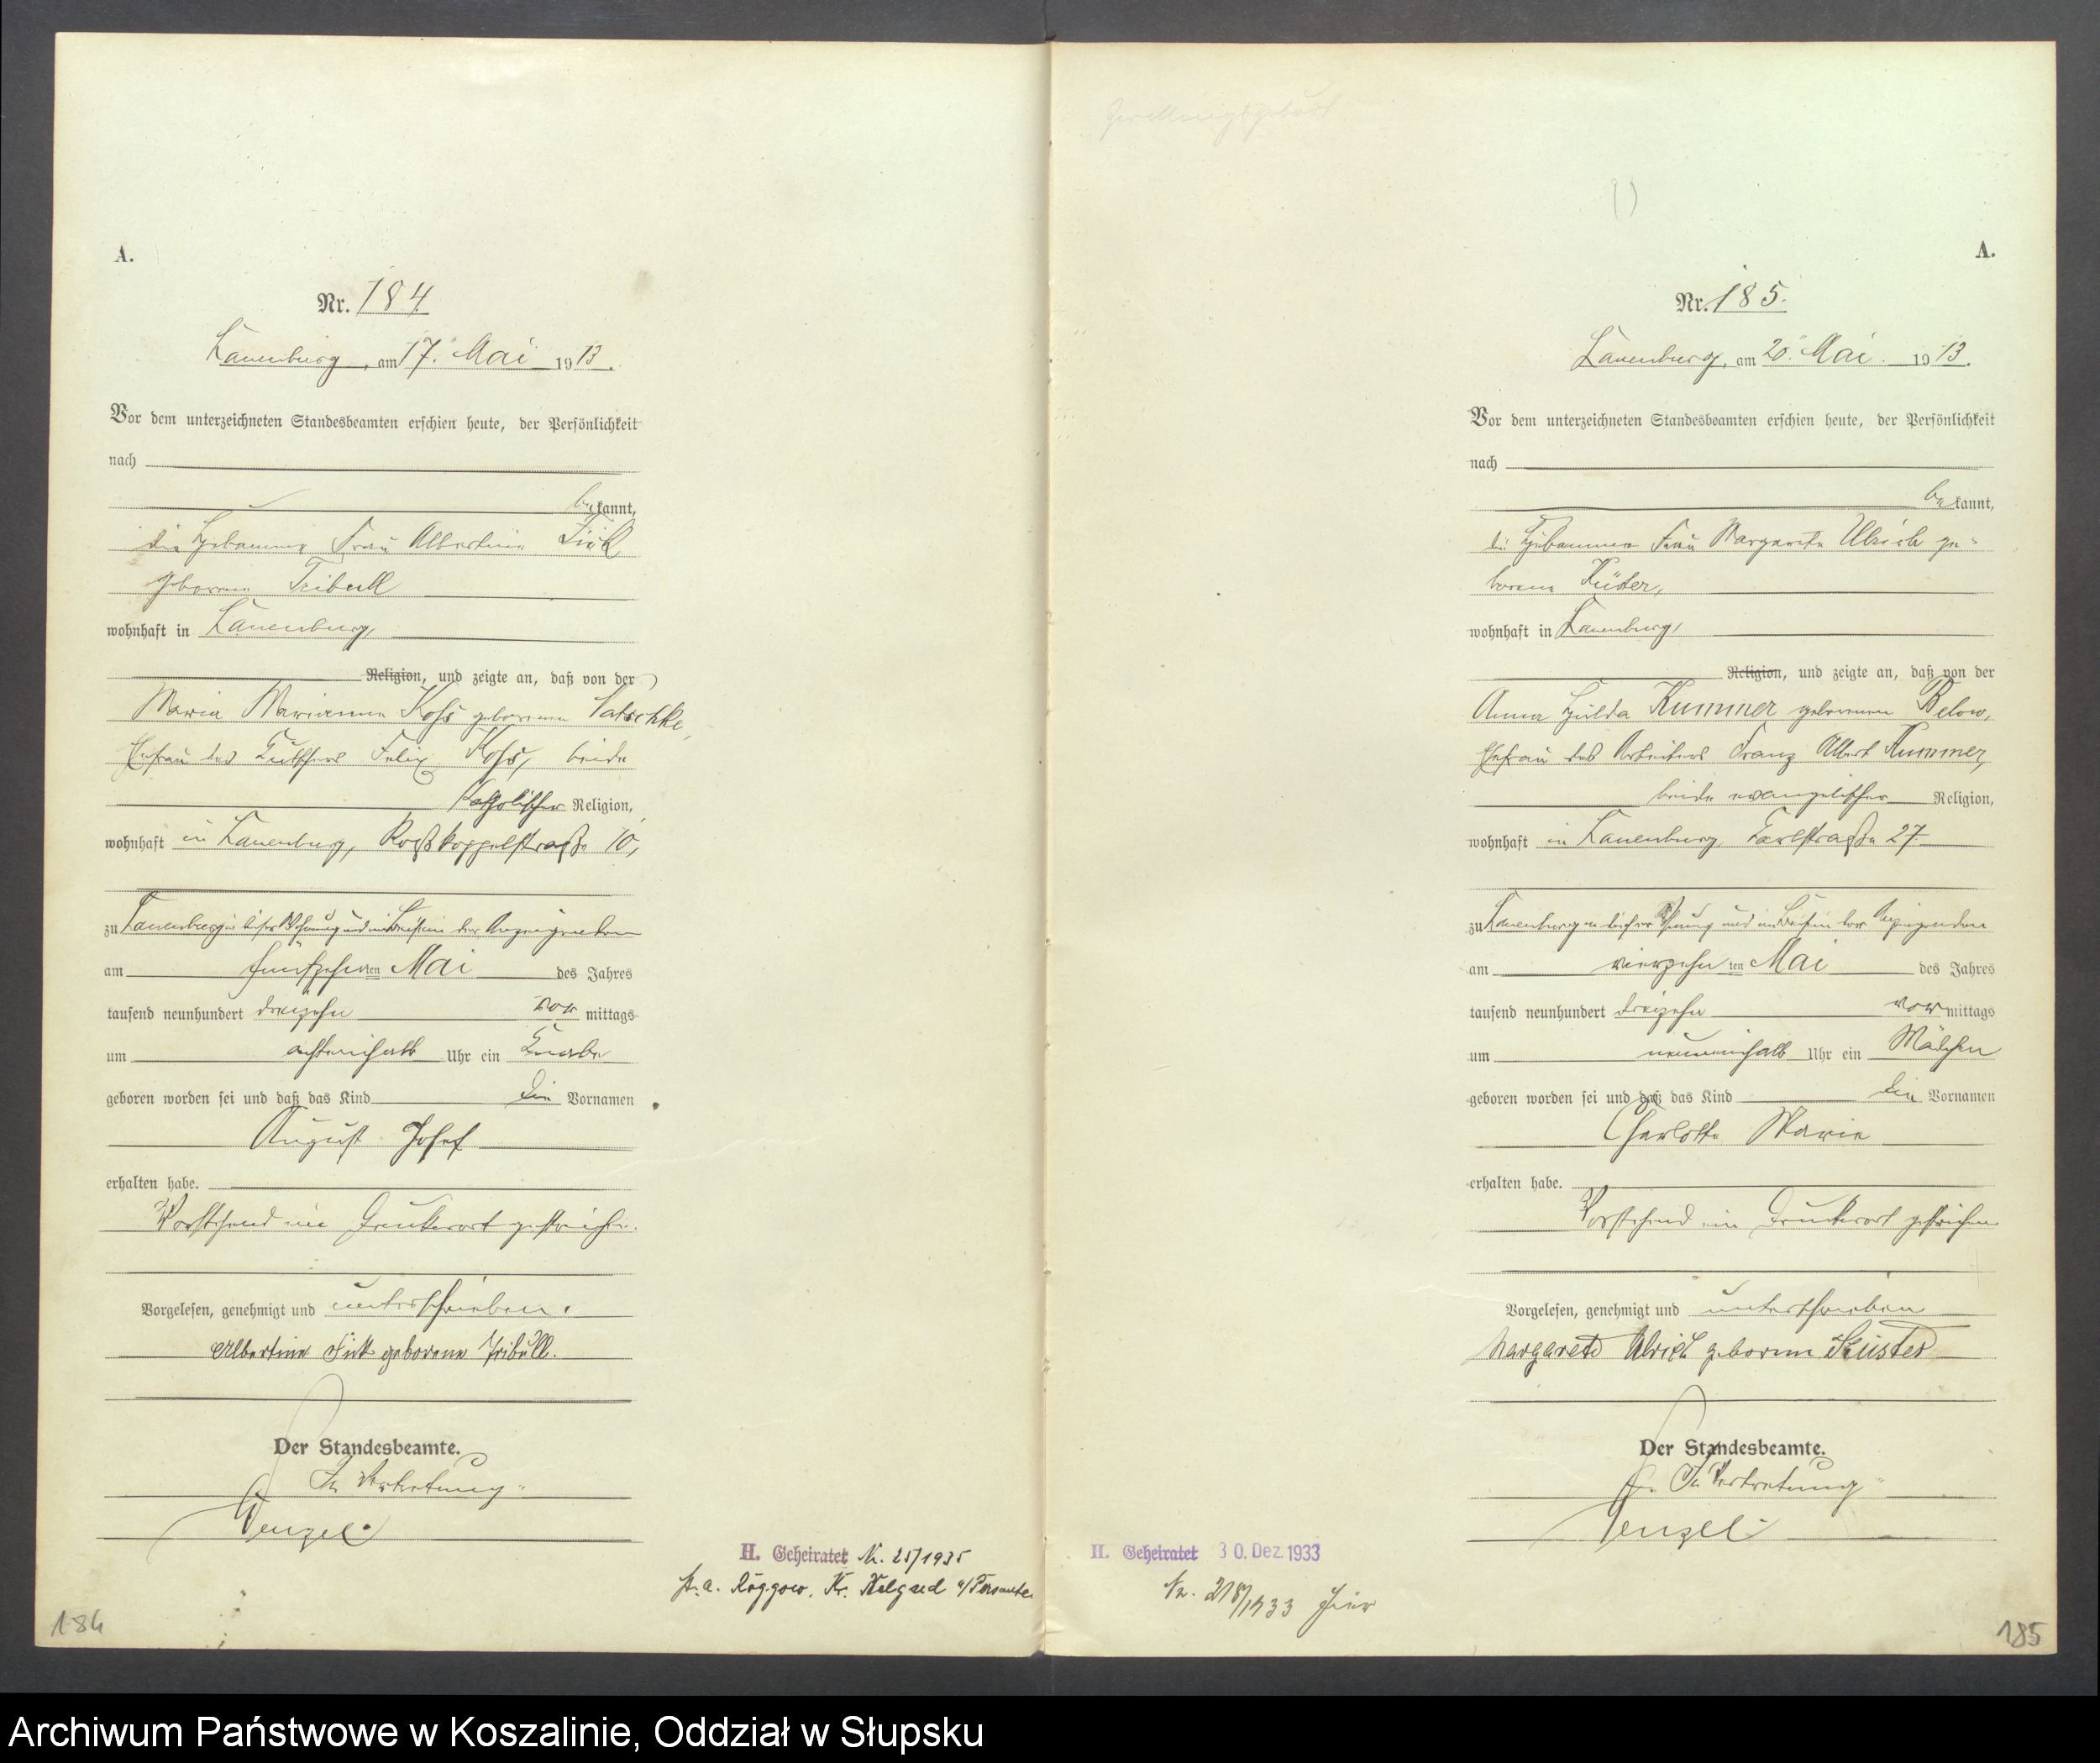 A.
Nr. 184
Lauenburg, am 17. Mai 1913.
Vor dem unterzeichneten Standesbeamten erschien heute, der Persönlichkeit
nach
bekannt,
die Hebamme Frau Albertine Fick
geborene Tribull
wohnhaft in Lauenburg,
Religion, und zeigte an, daß von der
Maria Marianna Koss geborenen Tatschke,
Ehefrau des Felix Koss, beide
katholischer Religion,
wohnhaft in Lauenburg, Roßkoppelstraße 10,
zu Lauenburg in dieser Wohnung und im Beisein der Anzeigenden
am fünfzehnten Mai des Jahres
tausend neunhundert dreizehn vor mittags
um achteinhalb Uhr ein Knabe
geboren worden sei und daß das Kind die Vornamen
August Josef
erhalten habe.
Vorstehend ein Druckwort gestrichen.
Vorgelesen, genehmigt und unterschrieben.
Albertine Fick geborene Tribull.
Der Standesbeamte.
In Vertretung.
Wenzel.
II. Geheiratet Nr. 25/1935
St. A. Roggow, Kr. Belgard a/Persante
184
A.
Nr. 185.
Lauenburg, am 20. Mai 1913.
Vor dem unterzeichneten Standesbeamten erschien heute, der Persönlichkeit
nach
bekannt,
die Hebamme Frau Margarete Ulrich ge-
borene Küster,
wohnhaft in Lauenburg,
Religion, und zeigte an, daß von der
Anna Hulda Kummer geborenen Below,
Ehefrau des Arbeiters Franz Albert Kummer,
beide evangelischer Religion,
wohnhaft in Lauenburg Karlstraße 27
zu Lauenburg in dieser Wohnung und im Beisein der Anzeigenden
am vierzehnten Mai des Jahres
tausend neunhundert dreizehn vormittags
um neuneinhalb Uhr ein Mädchen
geboren worden sei und daß das Kind die Vornamen
Charlotte Marie
erhalten habe.
Vorstehend ein Druckwort gestrichen
Vorgelesen, genehmigt und unterschrieben
Margarete Ulrich geborene Küster
Der Standesbeamte.
In Vertretung
Wenzel
II. Geheiratet 30. Dez. 1933
Nr. 218/1933 hier
185
Archiwum Państwowe w Koszalinie, Oddział w Słupsku